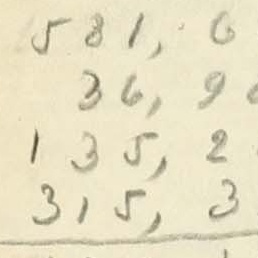 581, 6
36, 9
135, 2
315, 3